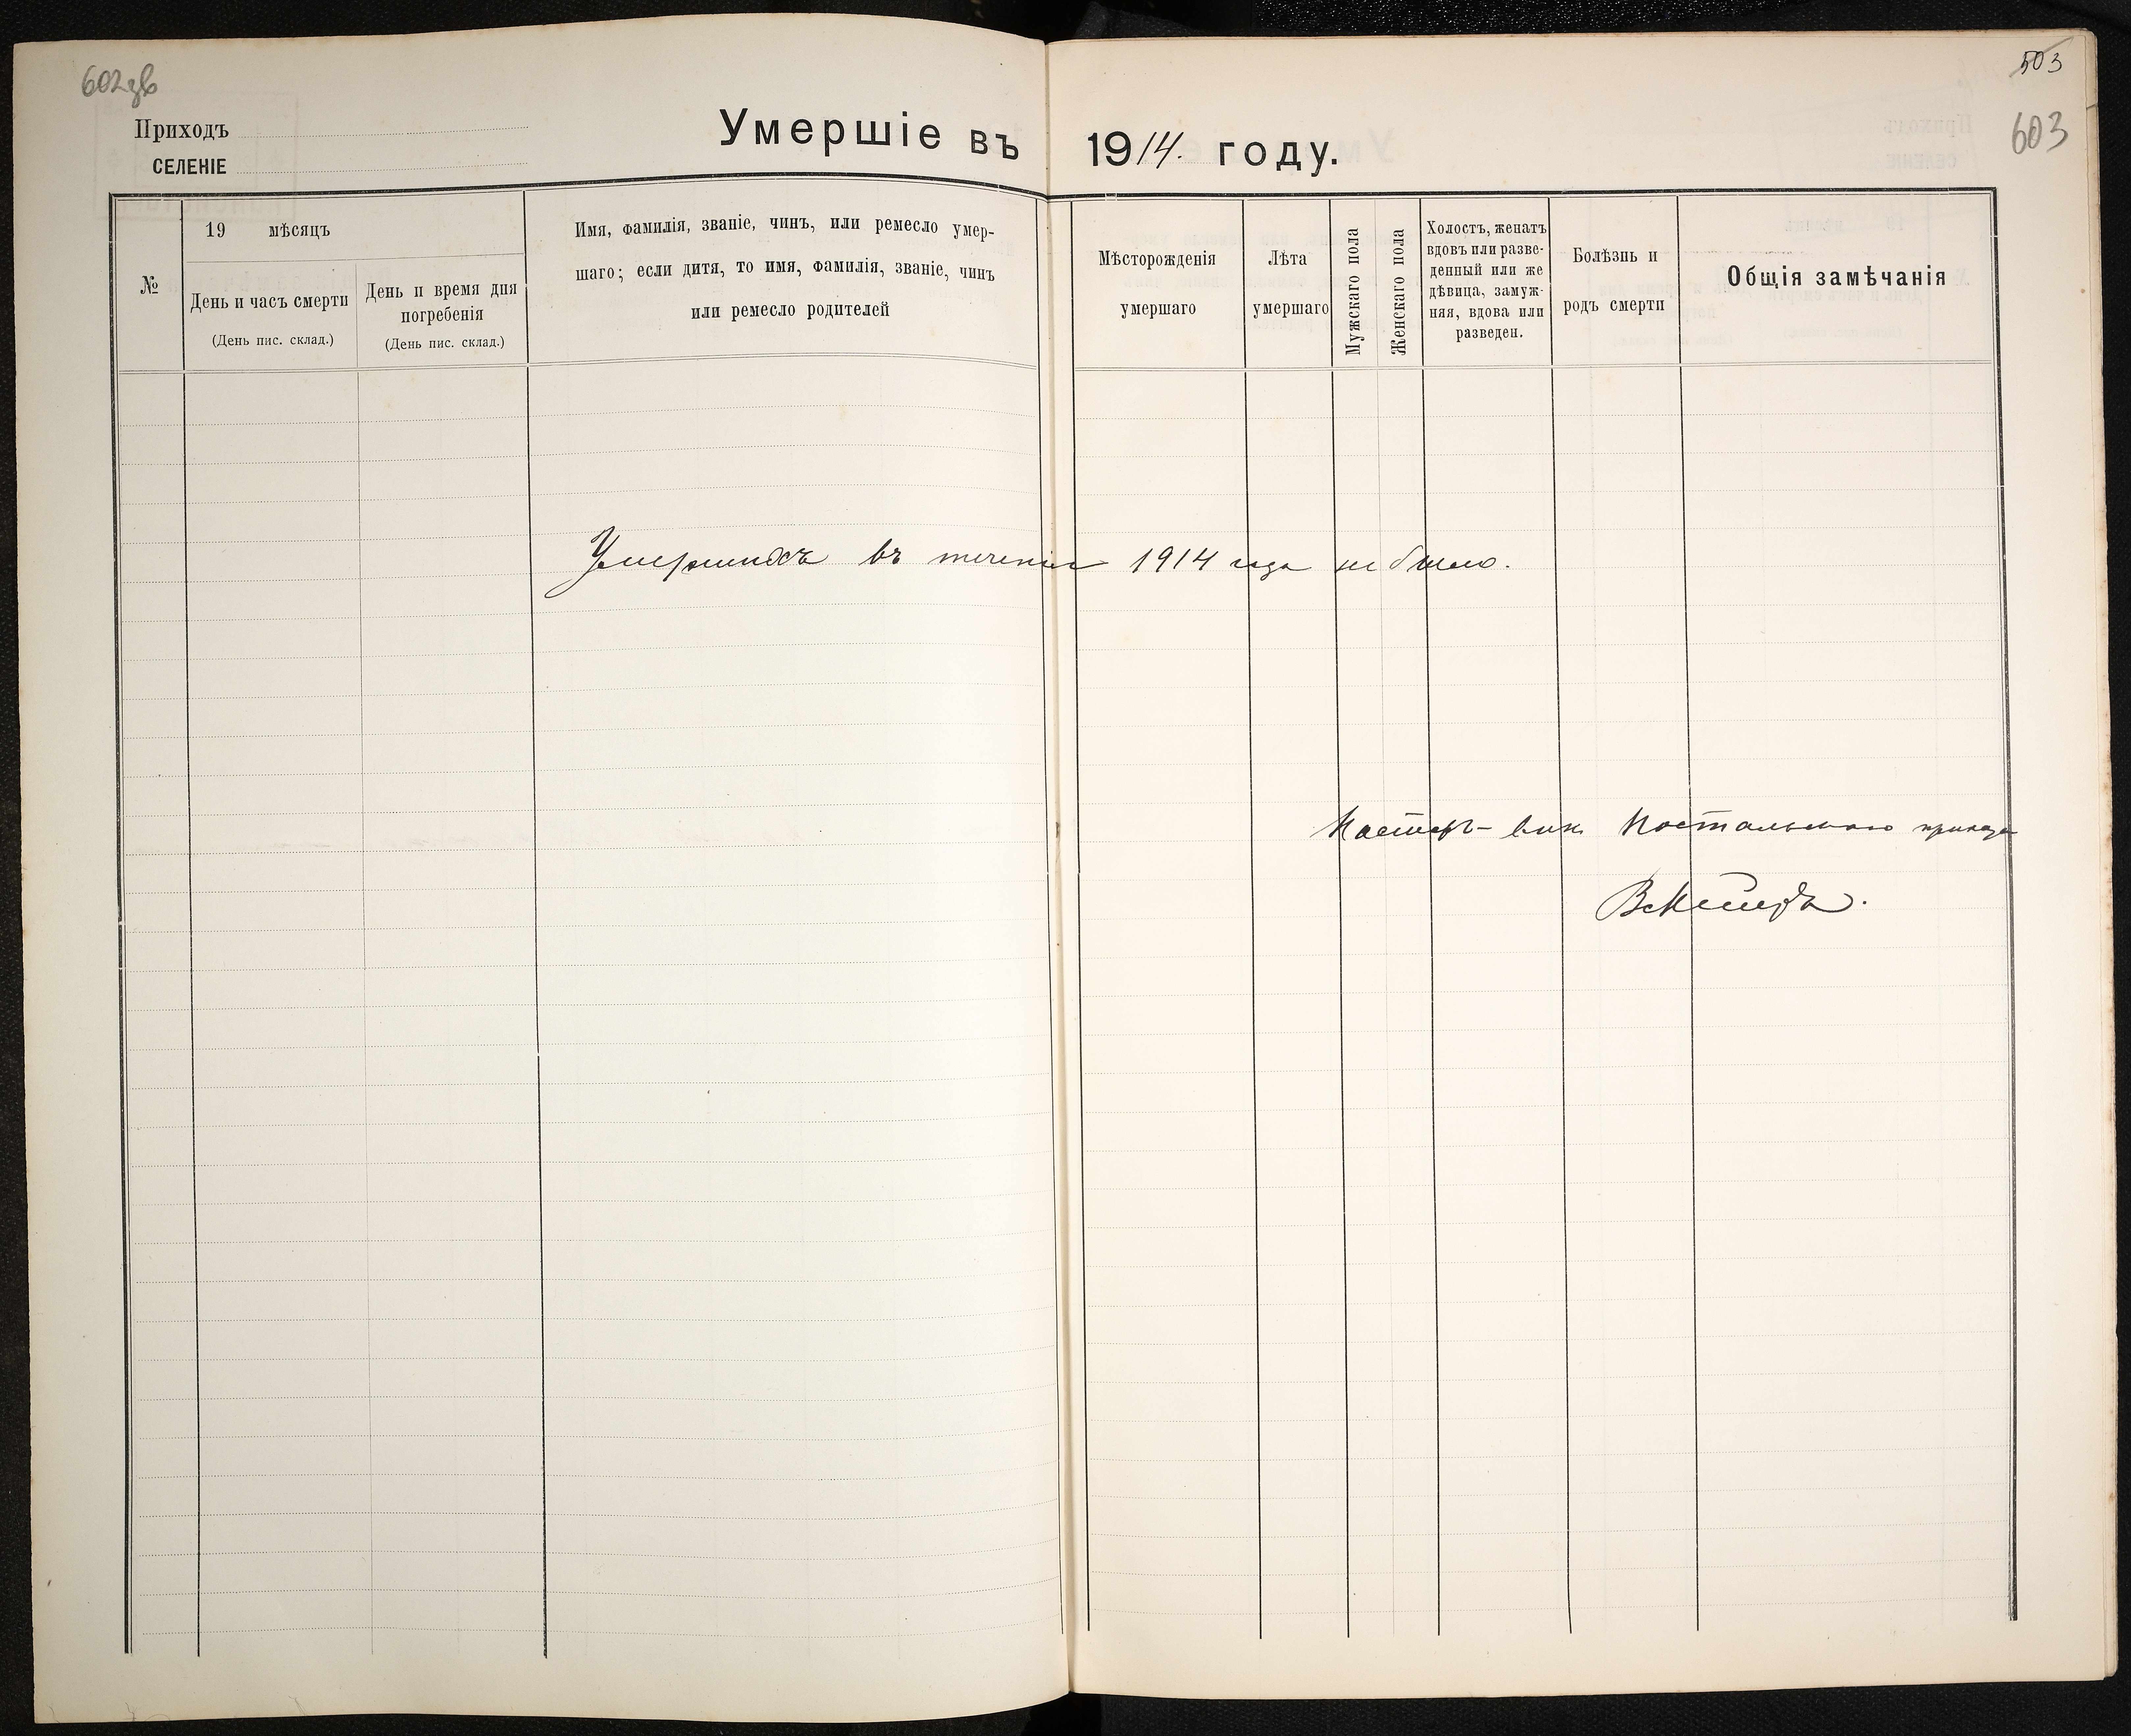 602зв
503
603
Приходъ
СЕЛЕНІЕ
Умершіе въ 1914. году.
№
19 мѣсяцъ
День и часъ смерти
(День пис. склад.)
День и время дня
погребенія
(День пис. склад.)
Имя, фамилія, званіе, чинъ, или ремесло умер-
шаго; если дитя, то имя, фамилія, званіе, чинъ
или ремесло родителей
Мѣсторожденія
умершаго
Лѣта
умершаго
Мужскаго пола
Женскаго пола
Холостъ, женатъ
вдовъ или разве-
денный или же
дѣвица, замуж-
няя, вдова или
разведен.
Болѣзнь и
родъ смерти
Общія замѣчанія
Умершихъ въ теченіи 1914 года не было.
Пастор- вик. прихода